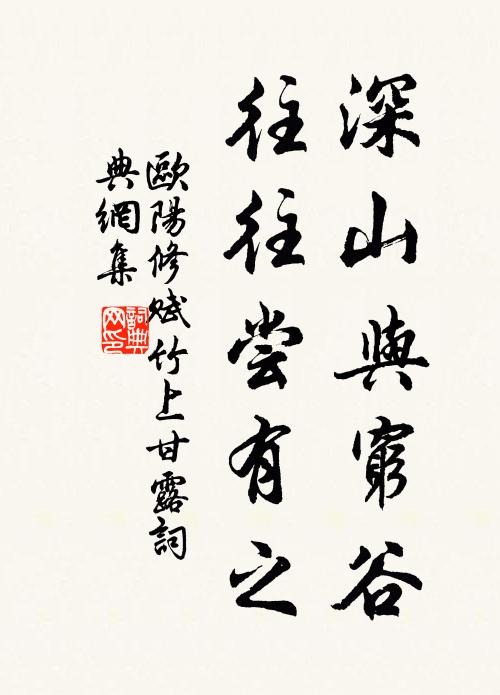 深山與窮谷
往往尝有之
歐陽修賦竹上甘露詞
典網集
詞典
网印